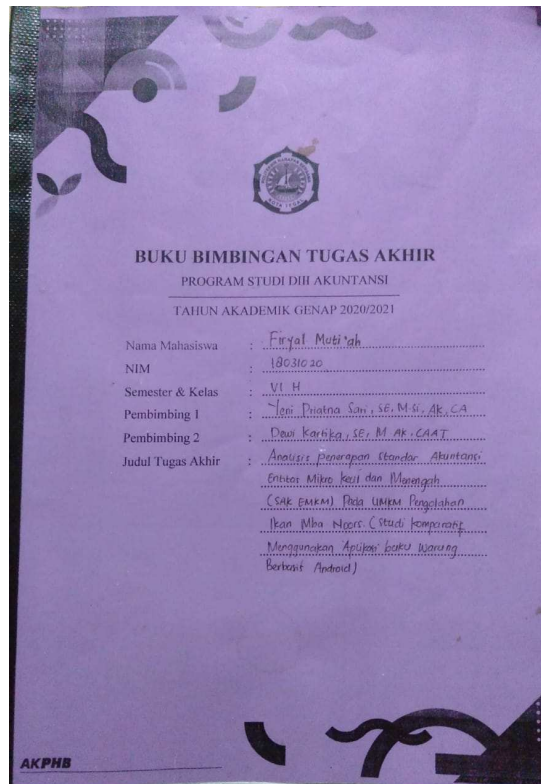 BUKU BIMBINGAN TUGAS AKHIR
PROGRAM STUDI DIII AKUNTANSI
TAHUN AKADEMIK GENAP 2020/2021
Nama Mahasiswa : Firyal Muti'ah
NIM : 18031020
Semester & Kelas : VI H
Pembimbing 1 : Yeni Priatna Sari, SE, M.Si, Ak, CA
Pembimbing 2 : Dewi Kartika, SE, M Ak, CAAT
Judul Tugas Akhir : Analisis penerapan Standar Akuntansi
Entitas Mikro kecil dan Menengah
(SAK EMKM) Pada UMKM Pengolahan
Ikan Mba Noors. (Studi komparatif
Menggunakan Aplikasi buku Warung
Berbasis Android)
AKPHB